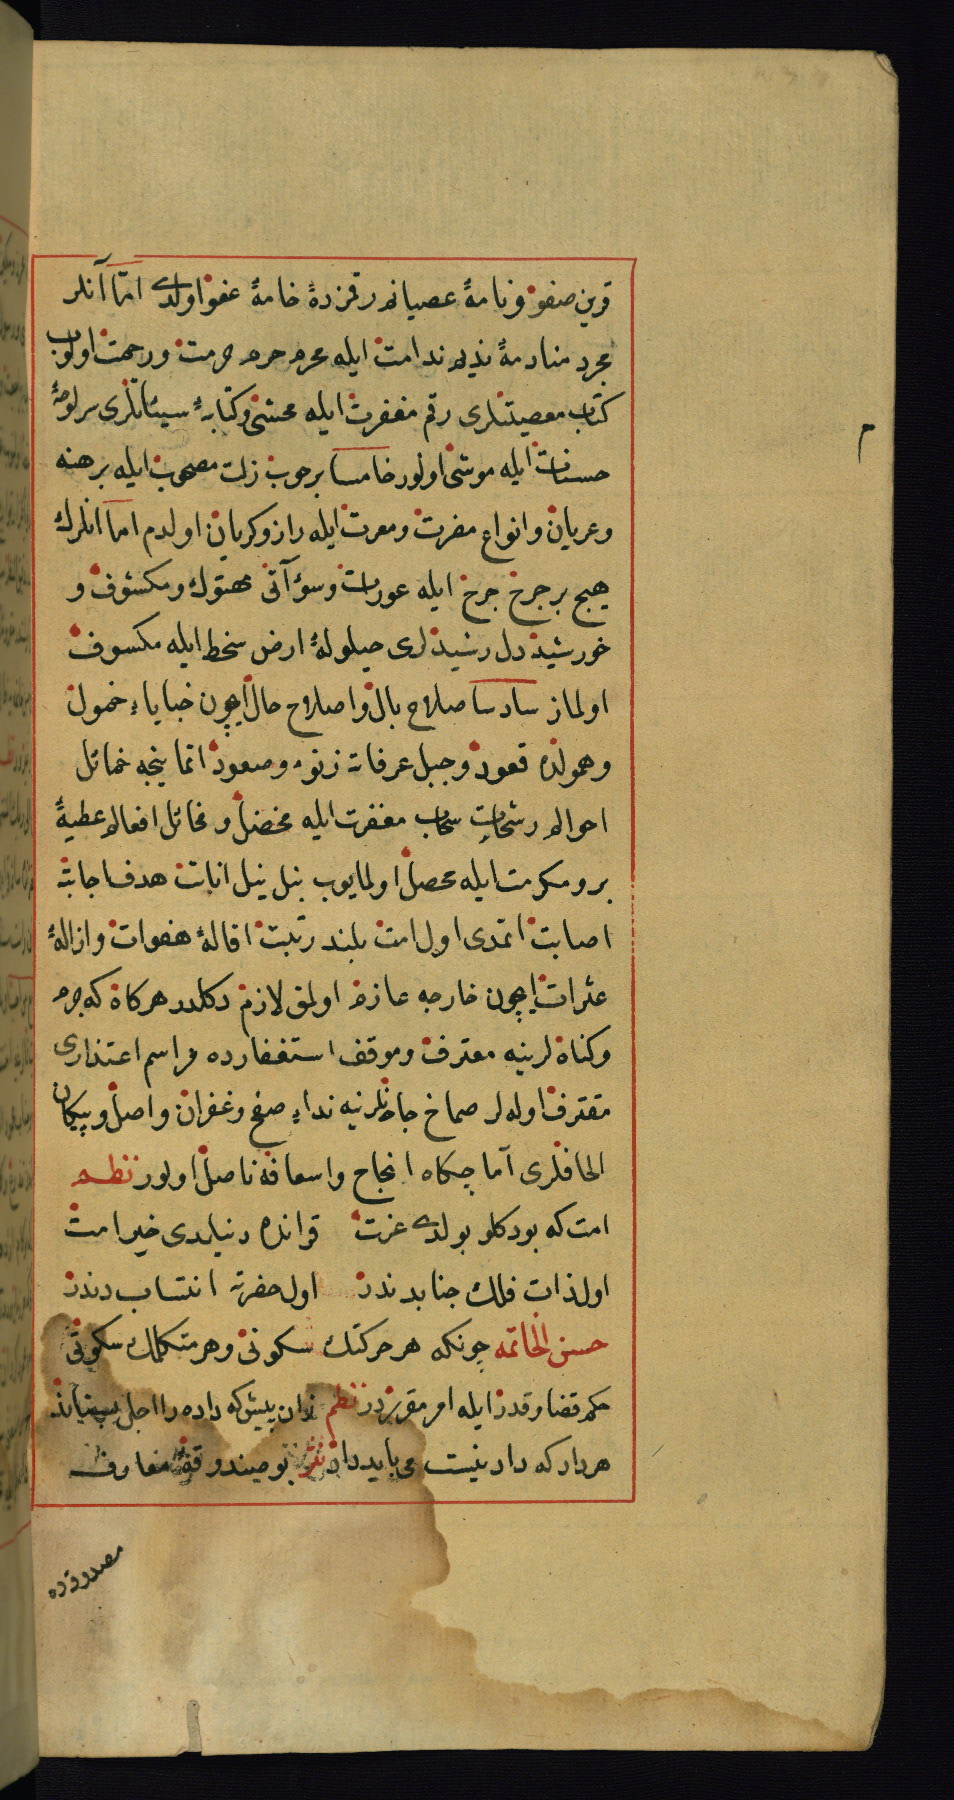 قرین صفو و نامهٔ عصیانه رقمزدهٔ خامهٔ عفو اولدی امّا آنلر
مجرد منادمهٔ ندیم ندامت ایله محرم حرم حرمت و رحمت اولوب
کتاب معصیتلری رقم مغفرت ایله محشی و کتابهٔ سیئاتلری سرلوحهٔ
حسنات ایله موشی اولور خامسا برحوب زلت مصحوب ایله برهنه
وعریان وانواع مضرت ومعرت ایله راز و کریان اولدم اما انلرك
هیج بر جرخ جرخ ایله عورات وسوٴآتی مهتوك ومکشوف و
خورشید دل رشیدلری حیلولهٔ ارض سخط ایله مکسوف
اولماز سادسا صلاح بال و اصلاح حال ایچون خبایاء خمول
وهمولده قعود وجبل عرفات زنوء وصعود اتما ینجه خمائل
احواله رشحات سحاب مغفرت ایله مخضل و مخائل افعاله عطیهٔ
بر ومکرمت ایله محصل اولمایوب نبل نیل انابت هدف اجابته
اصابت اتمدی اول امت بلند رتبت اقالهٔ هفوات وازالهٔ
عثرات ایچون خارجه عازم اولمق لازم دکلدر هرکاه که جرم
وکناه لرینه معترف وموقف استغفارده مراسم اعتذاری
مقترف اوله لر صماخ جانلرینه نداء صفح وغفران واصل و پیکان
الحافلری آماجکاه انجاح واسعافه ناصل اولور نظم
امت که بودکلو بولدی عزت قرانده دنیلدی خیر امت
اول ذات فلك جنابدندر اول حضرته انتسابدندر
حسن الخاتمه چونکه هر حرکتك سکونی وهر متکلمك سکوتی
حکم قضا و قدر ایله امر مقرردر نظم زان پیش که داده را اجل بستاند
هرداد که دادنیست می باید داد نثر بو صیندوقهٔ معارف
مصدوقه